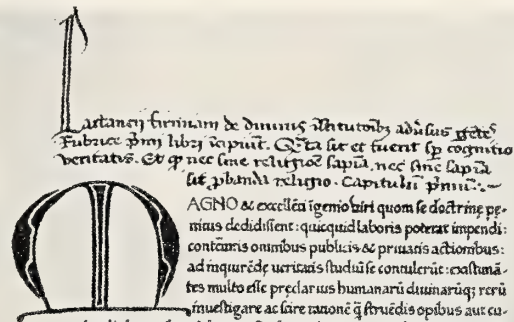 Lactancii firmiani de diuinis īstitutoībꝫ adūsus gētes
Rubrice pͥmi libri īcipiūt. Qͣta sit et fuerit sp̄ cognitio
veritatis. Et qͩ nec sine religiōe sapīa. nec sine sapīa
sit ꝓbanda religio. Capitulū pͥmū.
MAGNO & excellēti īgenio viri quom se doctrine pe-
nitus dedidissent: quicquid laboris poterat impendi:
contēptis omnibus publicis & priuatis actionibus:
ad inquirēdę ueritatis studiū se contulerūt: existimā-
tes multo esse pręclarius humanarū diuinarūq; rerū
inuestigare ac scire rationē q̄ struēdis opibus aut cu-